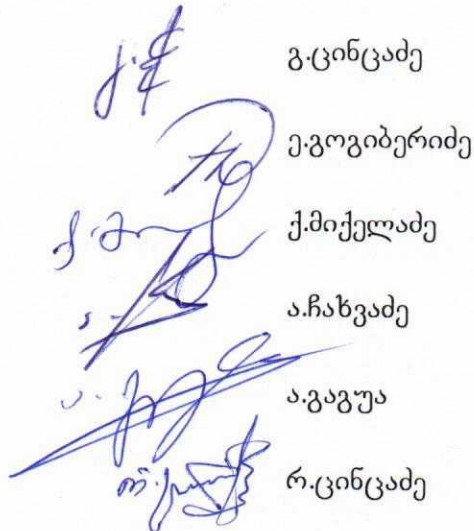 გ.ცინცაძე
ე.გოგიბერიძე
ქ.მიქელაძე
ა.ჩახვაძე
ა.გაგუა
რ.ცინცაძე